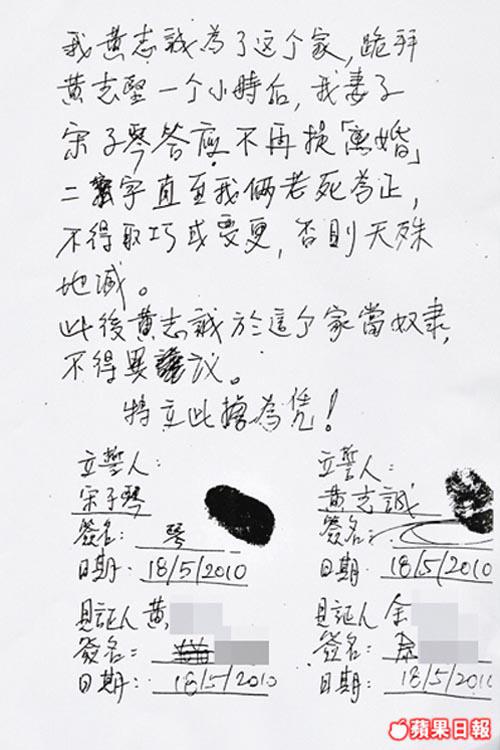 我黄志誠為了这个家,跪拜
黄志堅一个小時后,我妻子
宋子琴答應不再提「离婚」
二字直至我倆老死為止,
不得取巧或变更,否則天殊
地滅。
此後黄志誠於這个家當奴隶,
不得異議。
特立此據為凭!
立誓人:
宋子琴
簽名: 琴
日期: 18/5/2010
立誓人:
黄志誠
簽名:
日期: 18/5/2010
見証人 黄
簽名:
日期: 18/5/2010
見証人 余
簽名:
日期: 18/5/2010
蘋果日報